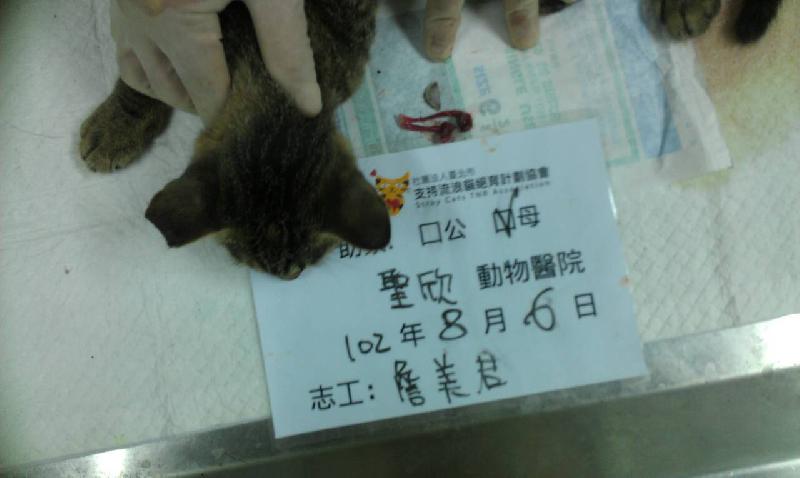 社團法人臺北市
支持流浪貓絕育計劃協會
Stray Cats TNR Association
□公 ☑母
聖欣 動物醫院
102年8月6日
志工：詹美君